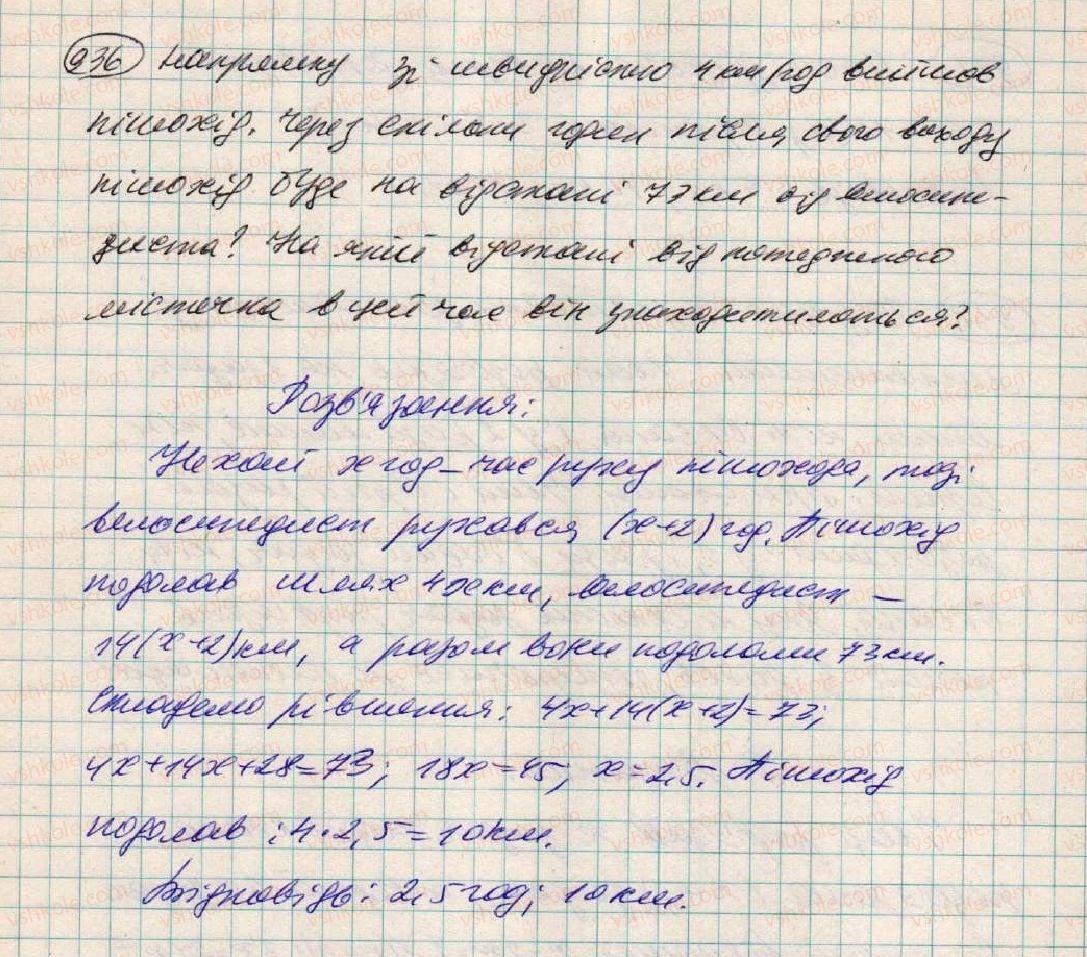 936 напрямку зі швидкістю 4 км/год вийшов
пішохід. Через скільки годин після свого виходу
пішохід буде на відстані 73 км від велосипе-
диста? На якій відстані від
місточка в цей час він знаходитиметься?
Розв'язання:
Нехай x год – час руху пішохода, тоді
велосипедист рухався (x+2) год. Пішохід
подолав шлях 4x км, велосипедист –
14(x+2) км, а разом вони подолали 73 км.
Складемо рівняння: 4x+14(x+2)=73;
4x+14x+28=73; 18x=45; x=2,5. Пішохід
подолав: 4·2,5=10 км.
Відповідь: 2,5 год; 10 км.